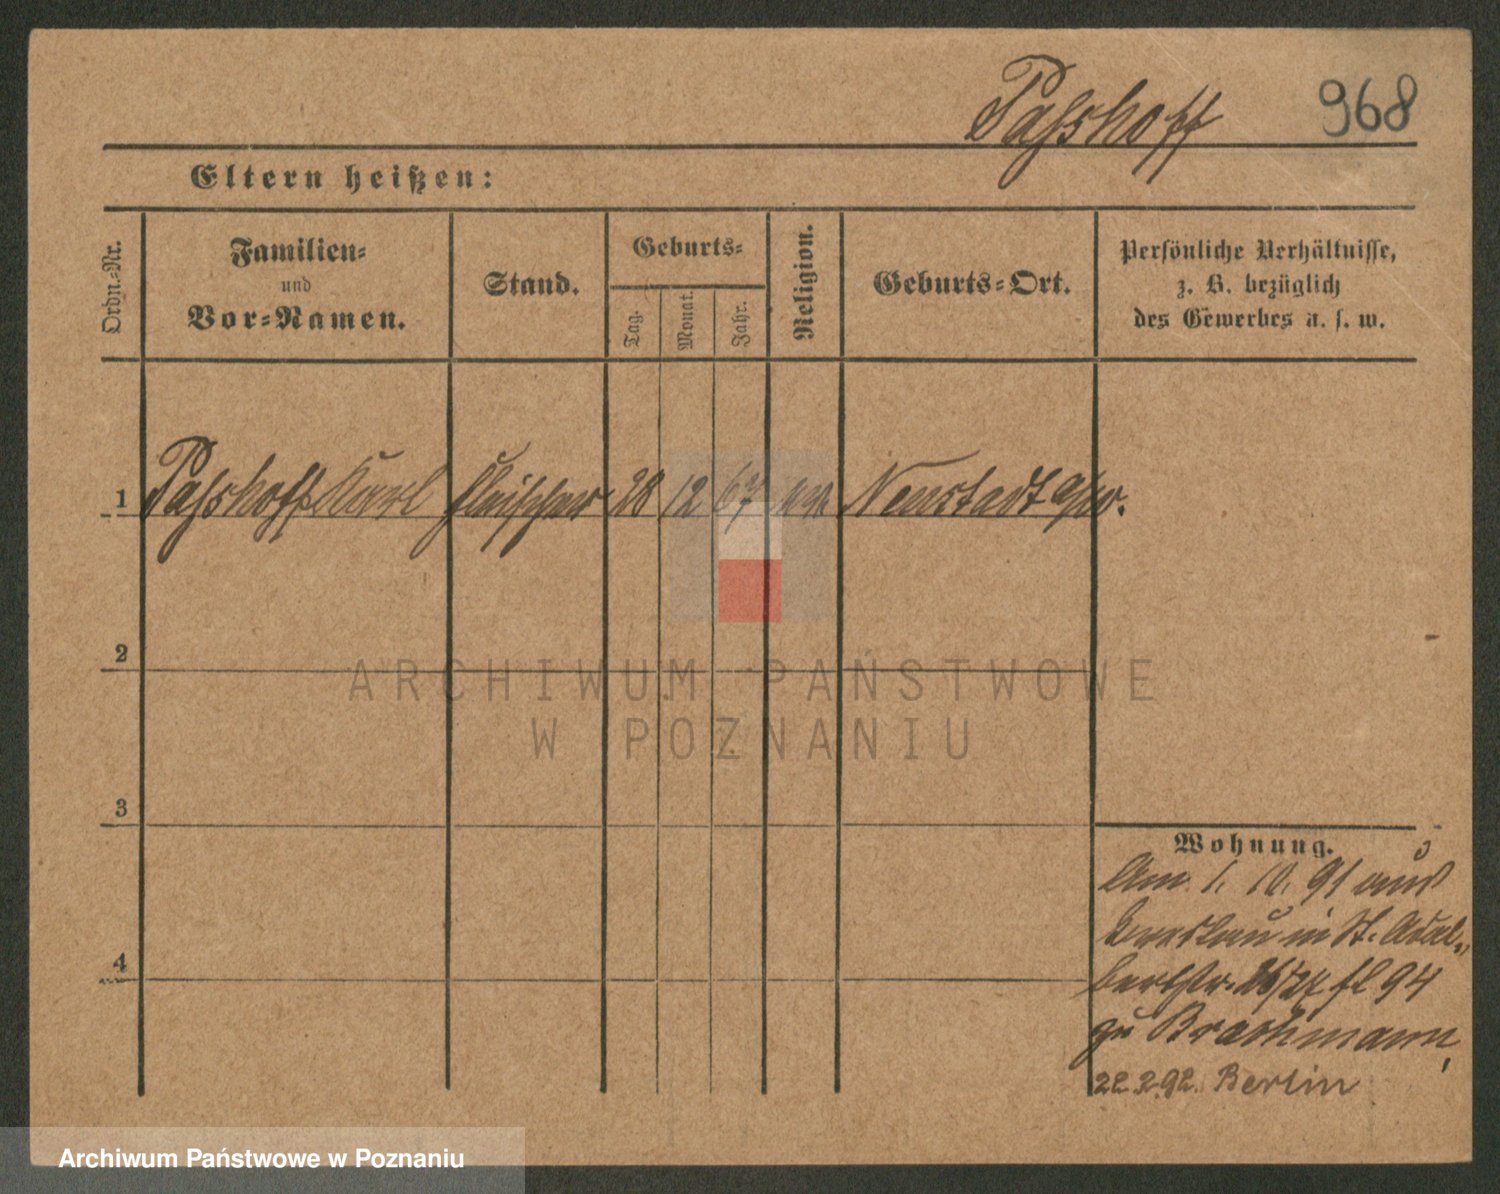 Paßhoff 968
Eltern heißen:
Ordn.-Nr.
Familien-
und
Vor-Namen.
Stand.
Geburts-
Tag.
Monat.
Jahr.
Religion.
Geburts-Ort.
Persönliche Verhältnisse,
z. B. bezüglich
des Gewerbes u. s. w.
1 Paßhoff Karl Fleischer 28 12 67 Neustadt a/W.
2
3
4
Wohnung.
Am 1. 10. 91 aus
Breslau in St. Adal-
bertstr. 26/27 fl 94
zu Brachmann,
22.2.92. Berlin
ARCHIWUM PAŃSTWOWE
W POZNANIU
Archiwum Państwowe w Poznaniu